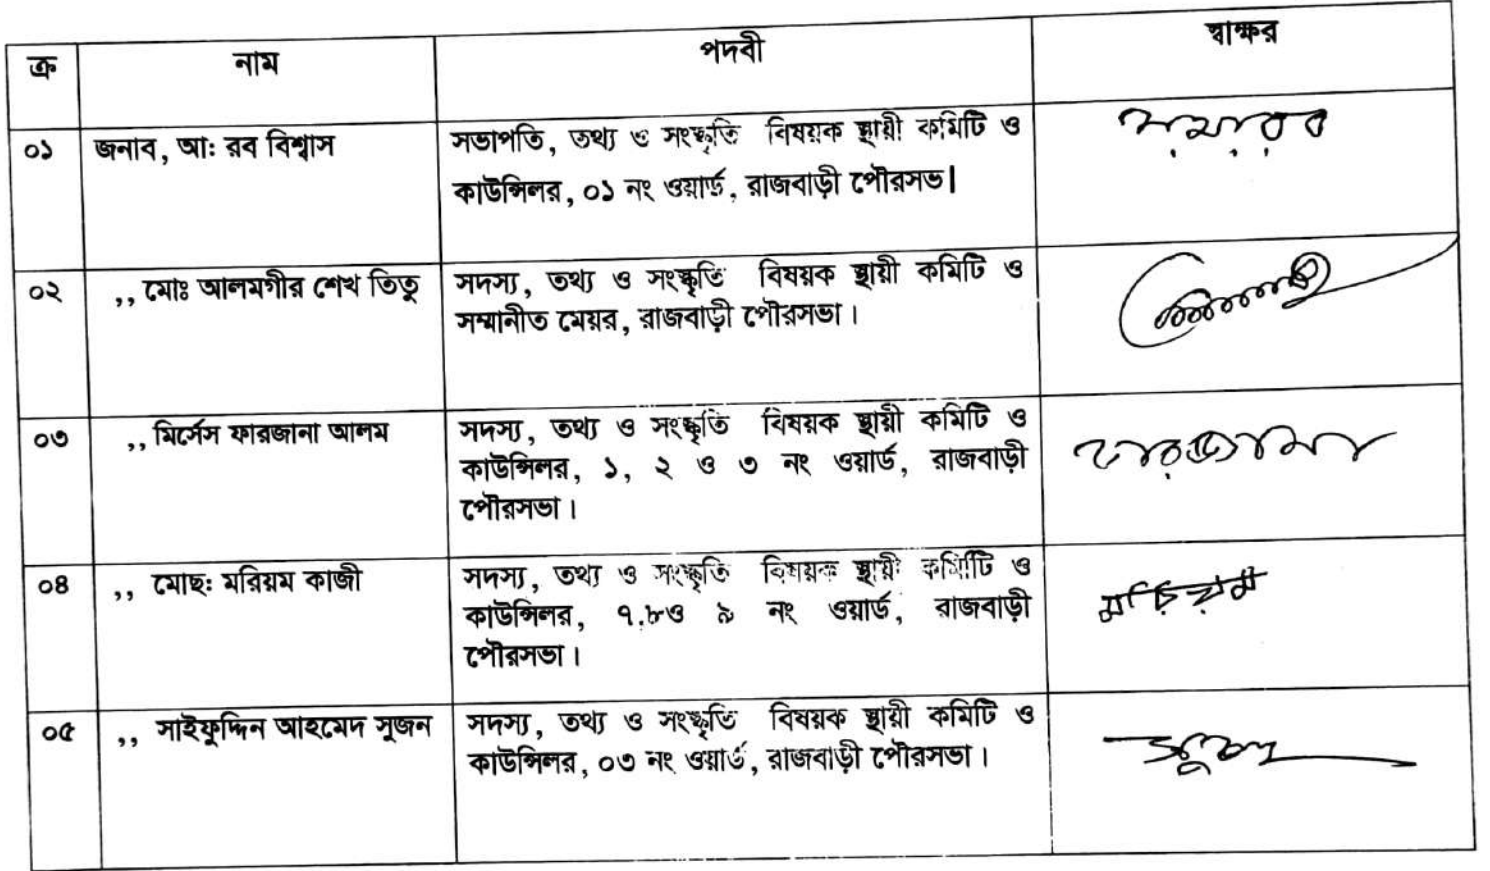 ক্র নাম পদবী স্বাক্ষর
০১ জনাব, আঃ রব বিশ্বাস সভাপতি, তথ্য ও সংস্কৃতি বিষয়ক স্থায়ী কমিটি ও
কাউন্সিলর, ০১ নং ওয়ার্ড, রাজবাড়ী পৌরসভ|
০২ ,, মোঃ আলমগীর শেখ তিতু সদস্য, তথ্য ও সংস্কৃতি বিষয়ক স্থায়ী কমিটি ও
সম্মানীত মেয়র, রাজবাড়ী পৌরসভা।
০৩ ,, মির্সেস ফারজানা আলম সদস্য, তথ্য ও সংস্কৃতি বিষয়ক স্থায়ী কমিটি ও
কাউন্সিলর, ১, ২ ও ৩ নং ওয়ার্ড, রাজবাড়ী
পৌরসভা।
ফারজানা
০৪ ,, মোছ: মরিয়ম কাজী সদস্য, তথ্য ও সংস্কৃতি বিষয়ক স্থায়ী কমিটি ও
কাউন্সিলর, ৭.৮ও ৯ নং ওয়ার্ড, রাজবাড়ী
পৌরসভা।
মরিয়ম
০৫ ,, সাইফুদ্দিন আহমেদ সুজন সদস্য, তথ্য ও সংস্কৃতি বিষয়ক স্থায়ী কমিটি ও
কাউন্সিলর, ০৩ নং ওয়ার্ড, রাজবাড়ী পৌরসভা।
সুজন